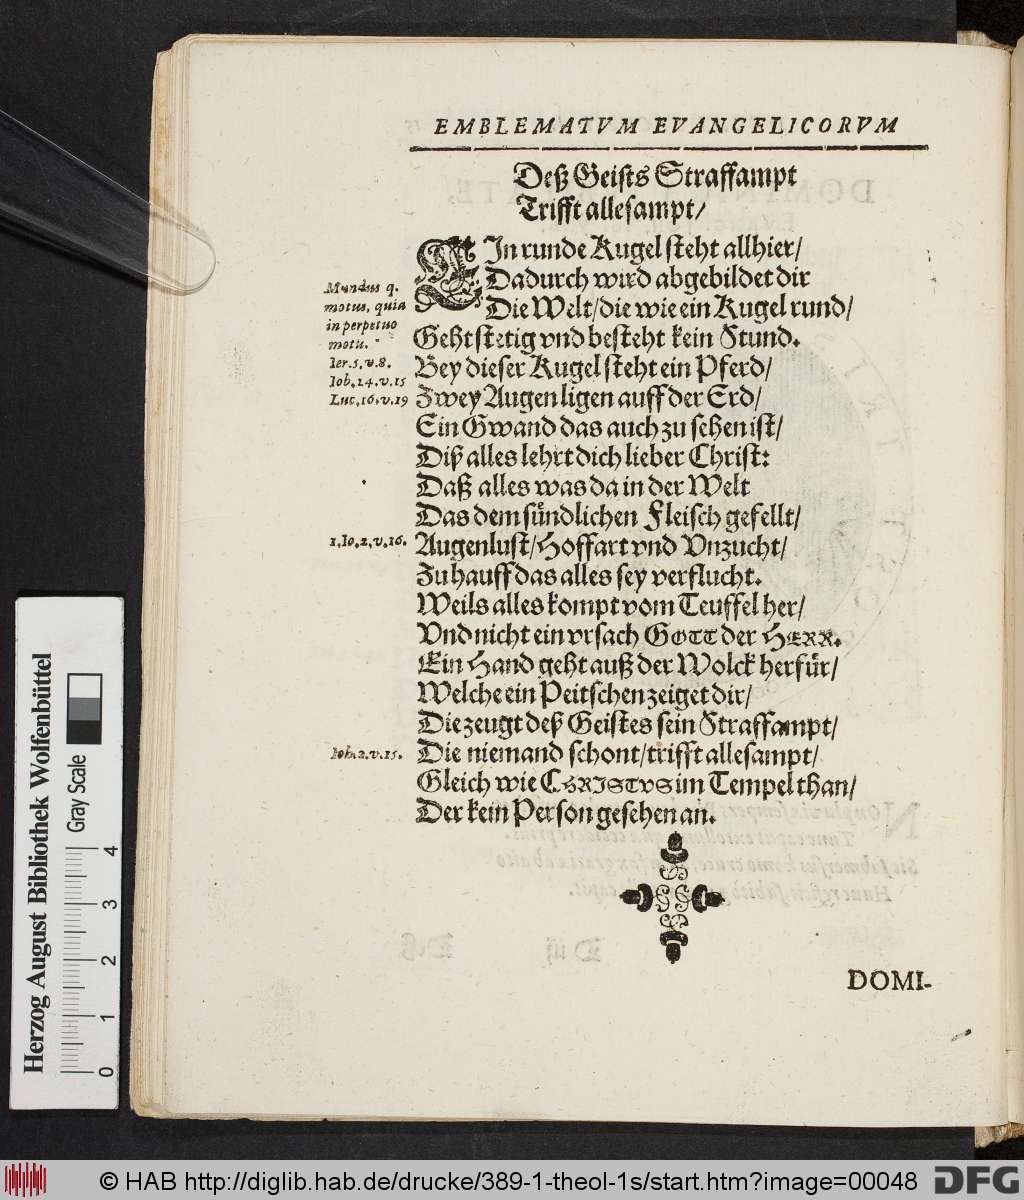 EMBLEMATVM EVANGELICORVM
Deß Geists Straffampt
Trifft allesampt/
EIn runde Kugel steht allhier/
Dadurch wird abgebildet dir
Die Welt/die wie ein Kugel rund/
Geht stetig vnd besteht kein Stund.
Bey dieser Kugel steht ein Pferd/
Zwey Augen ligen auff der Erd/
Ein Gwand das auch zu sehen ist/
Diß alles lehrt dich lieber Christ:
Daß alles was da in der Welt
Das dem sündlichen Fleisch gefellt/
Augenlust/Hoffart vnd Vnzucht/
Zu hauff das alles sey verflucht.
Weils alles kompt vom Teuffel her/
Vnd nicht ein vrsach GOTT der HERR.
Ein Hand geht auß der Wolck herfür/
Welche ein Peitschen zeiget dir/
Die zeugt deß Geistes sein Straffampt/
Die niemand schont/trifft allesampt/
Gleich wie CHRISTVS im Tempel than/
Der kein Person gesehen an.
Mundus q.
motus, quia
in perpetuo
motu.
Ier.5.v.8.
Iob.14.v.15
Luc.16.v.19
1.Io.2.v.16.
Ioh.2.v.15.
DOMI-
Herzog August Bibliothek Wolfenbüttel
Gray Scale
0 1 2 3 4
© HAB http://diglib.hab.de/drucke/389-1-theol-1s/start.htm?image=00048
DFG